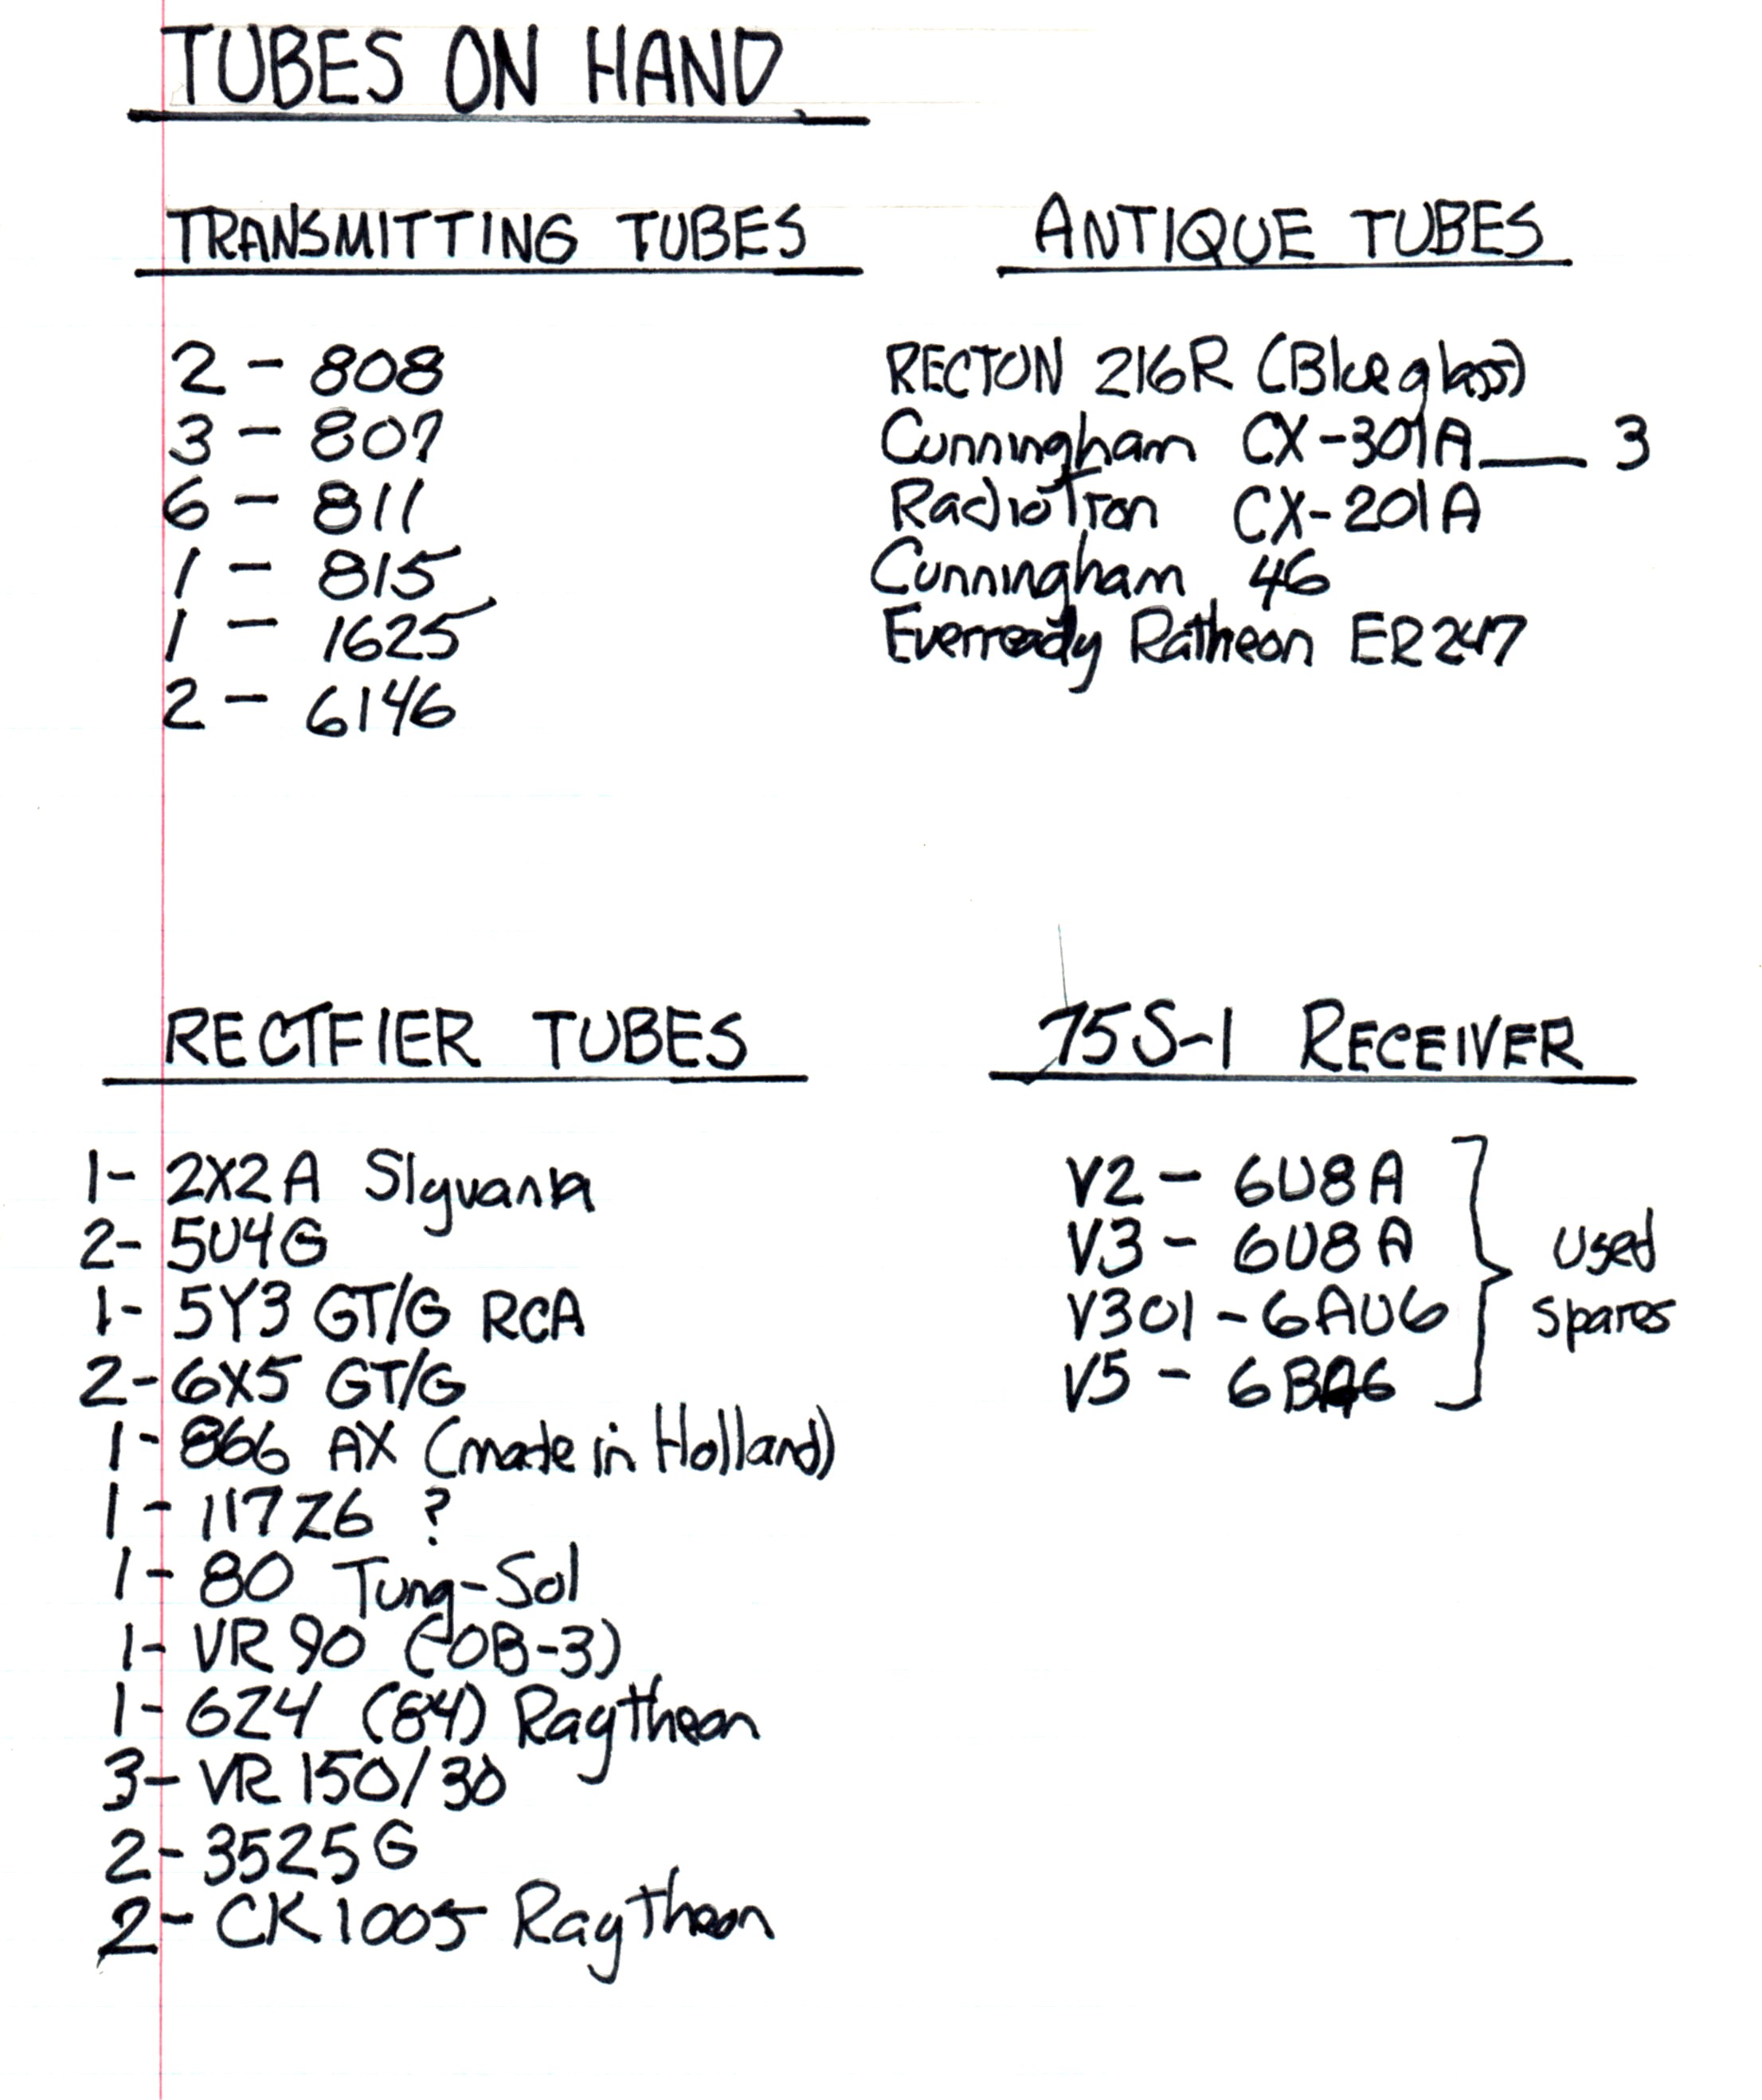 TUBES ON HAND
TRANSMITTING TUBES
2 - 808
3 - 807
6 - 811
1 - 815
1 - 1625
2 - 6146
ANTIQUE TUBES
RECTON 216R (Blue glass)
Cunningham CX-301A___ 3
RadioTron CX-201A
Cunningham 46
Everready Ratheon ER247
RECTFIER TUBES
1- 2X2A Slyvania
2- 5U4G
1- 5Y3 GT/G RCA
2- 6X5 GT/G
1- 866 AX (made in Holland)
1- 117Z6 ?
1- 80 Tung-Sol
1- VR90 (OB-3)
1- 6Z4 (84) Raytheon
3- VR150/30
2- 3525G
2- CK1005 Raytheon
75S-1 RECEIVER
V2 - 6U8A
V3 - 6U8A
V301 - 6AU6
V5 - 6BA6
used
spares